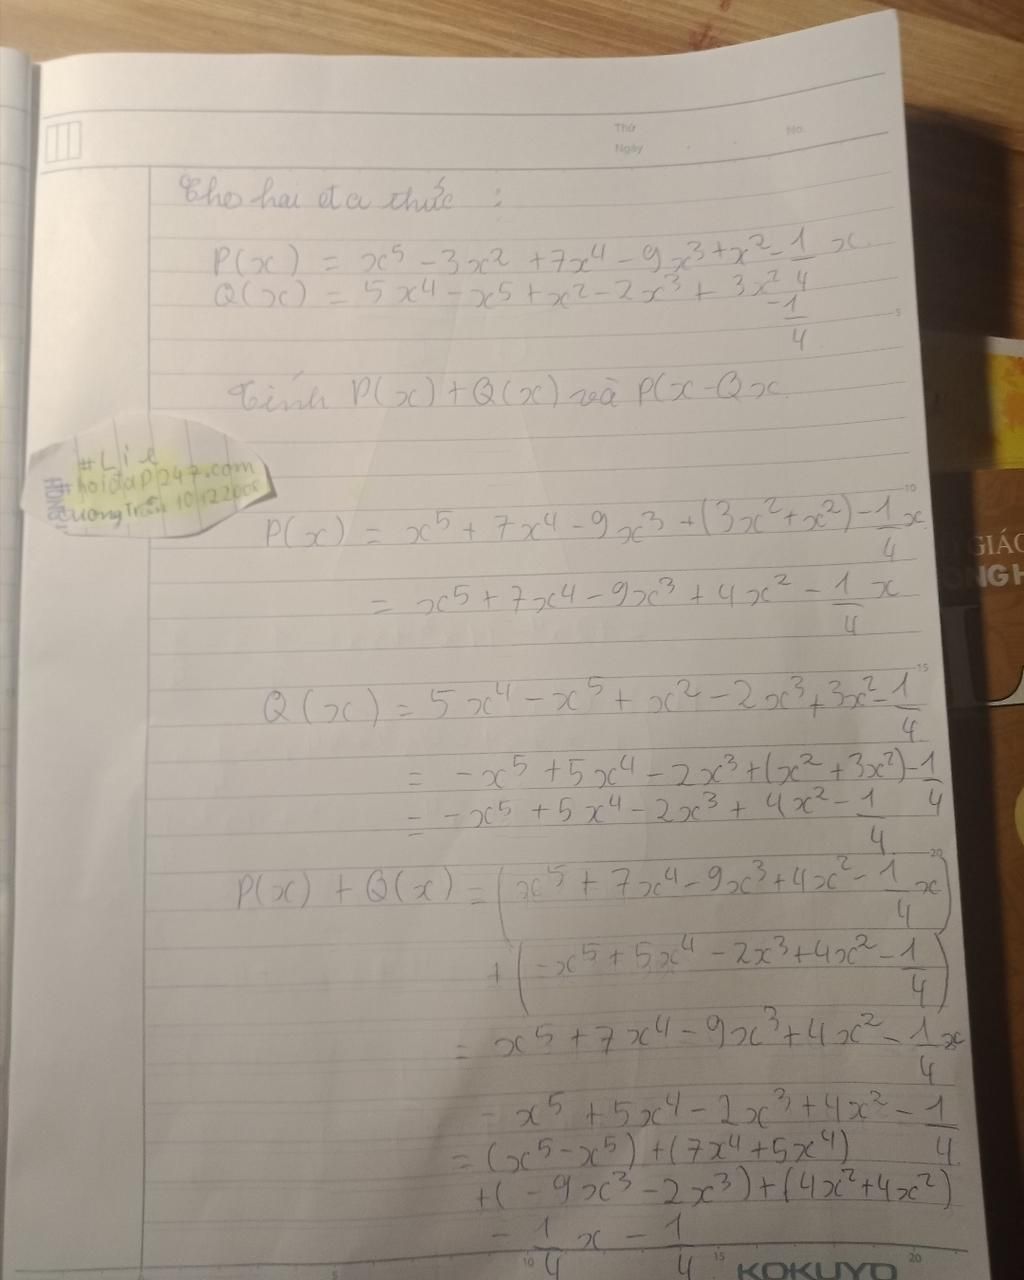 Thứ
No.
Ngày
Cho hai đa thức :
P(x) = x⁵ - 3x² + 7x⁴ - 9x³ + x² - 1/4 x
Q(x) = 5x⁴ - x⁵ + x² - 2x³ + 3x² - 1/4
5
Tính P(x) + Q(x) và P(x - Qx
#Lie
#hoidap247.com
10
P(x) = x⁵ + 7x⁴ - 9x³ + (3x² + x²) - 1/4 x
GIÁO
= x⁵ + 7x⁴ - 9x³ + 4x² - 1/4 x
15
Q(x) = 5x⁴ - x⁵ + x² - 2x³ + 3x² - 1/4
= -x⁵ + 5x⁴ - 2x³ + (x² + 3x²) - 1/4
= -x⁵ + 5x⁴ - 2x³ + 4x² - 1/4
20
P(x) + Q(x) = (x⁵ + 7x⁴ - 9x³ + 4x² - 1/4 x)
+ (-x⁵ + 5x⁴ - 2x³ + 4x² - 1/4)
= x⁵ + 7x⁴ - 9x³ + 4x² - 1/4 x
- x⁵ + 5x⁴ - 2x³ + 4x² - 1/4
= (x⁵ - x⁵) + (7x⁴ + 5x⁴)
+ (-9x³ - 2x³) + (4x² + 4x²)
- 1/4 x - 1/4
5 10 15 20
KOKUYO